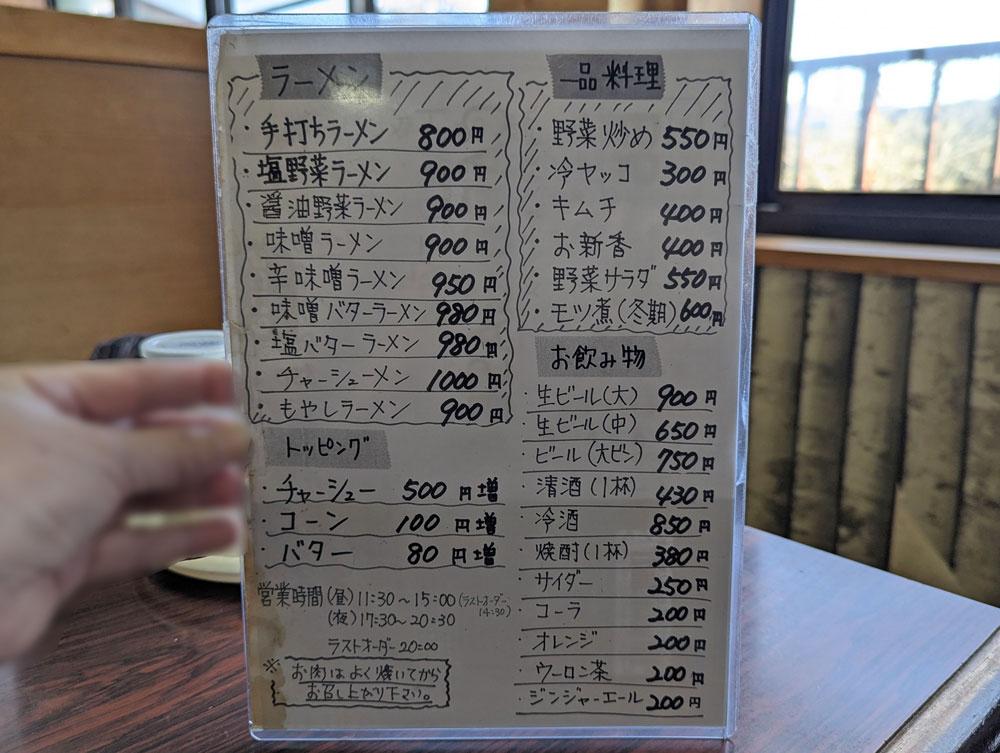 ラーメン
・手打ちラーメン 800円
・塩野菜ラーメン 900円
・醤油野菜ラーメン 900円
・味噌ラーメン 900円
・辛味噌ラーメン 950円
・味噌バターラーメン 980円
・塩バターラーメン 980円
・チャーシューメン 1000円
・もやしラーメン 900円
トッピング
・チャーシュー 500円増
・コーン 100円増
・バター 80円増
営業時間(昼)11:30～15:00(ラストオーダー14:30)
(夜)17:30～20:30
ラストオーダー20:00
※お肉はよく焼いてから
お召し上がり下さい。
一品料理
・野菜炒め 550円
・冷ヤッコ 300円
・キムチ 400円
・お新香 400円
・野菜サラダ 550円
・モツ煮(冬期) 600円
お飲み物
・生ビール(大) 900円
・生ビール(中) 650円
・ビール(大ビン) 750円
・清酒(1杯) 430円
・冷酒 850円
・焼酎(1杯) 380円
・サイダー 250円
・コーラ 200円
・オレンジ 200円
・ウーロン茶 200円
・ジンジャーエール 200円